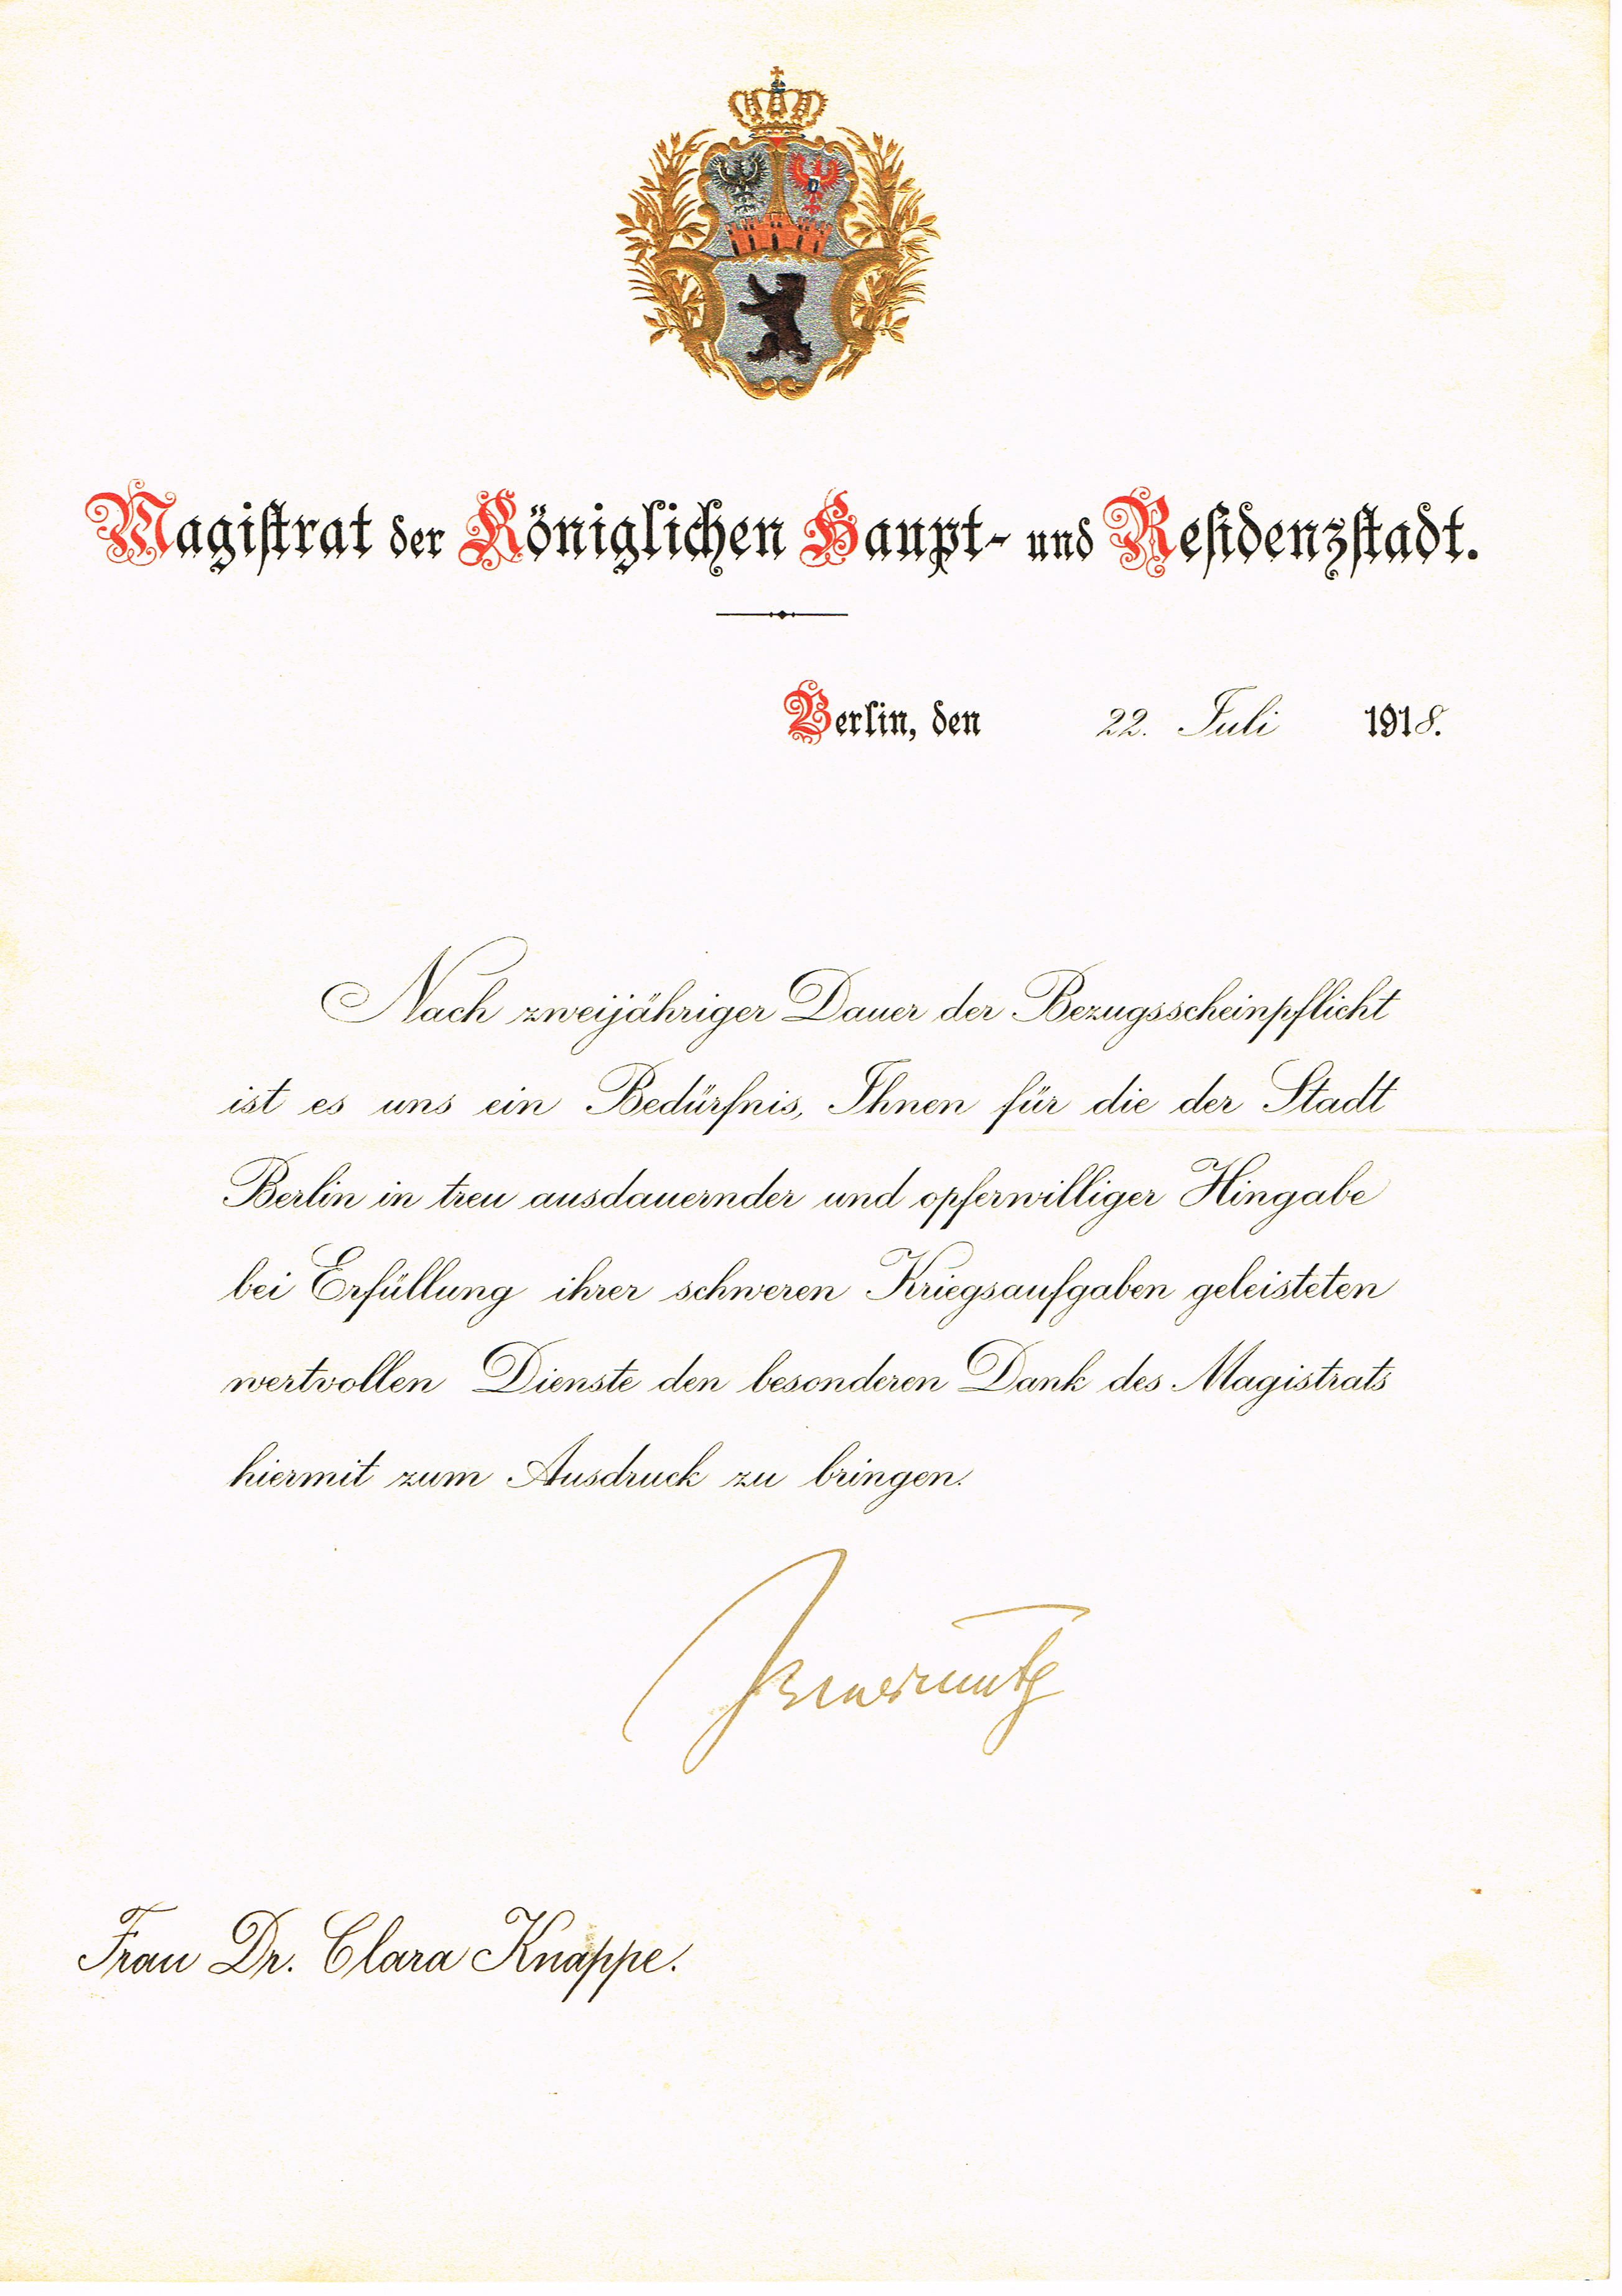 Magistrat der Königlichen Haupt- und Residenzstadt.
Berlin, den 22. Juli 1918.
Nach zweijähriger Dauer der Bezugsscheinpflicht
ist es uns ein Bedürfnis, Ihnen für die der Stadt
Berlin in treu ausdauernder und opferwilliger Hingabe
bei Erfüllung ihrer schweren Kriegsaufgaben geleisteten
wertvollen Dienste den besonderen Dank des Magistrats
hiermit zum Ausdruck zu bringen.
Wermuth
Frau Dr. Clara Knappe.